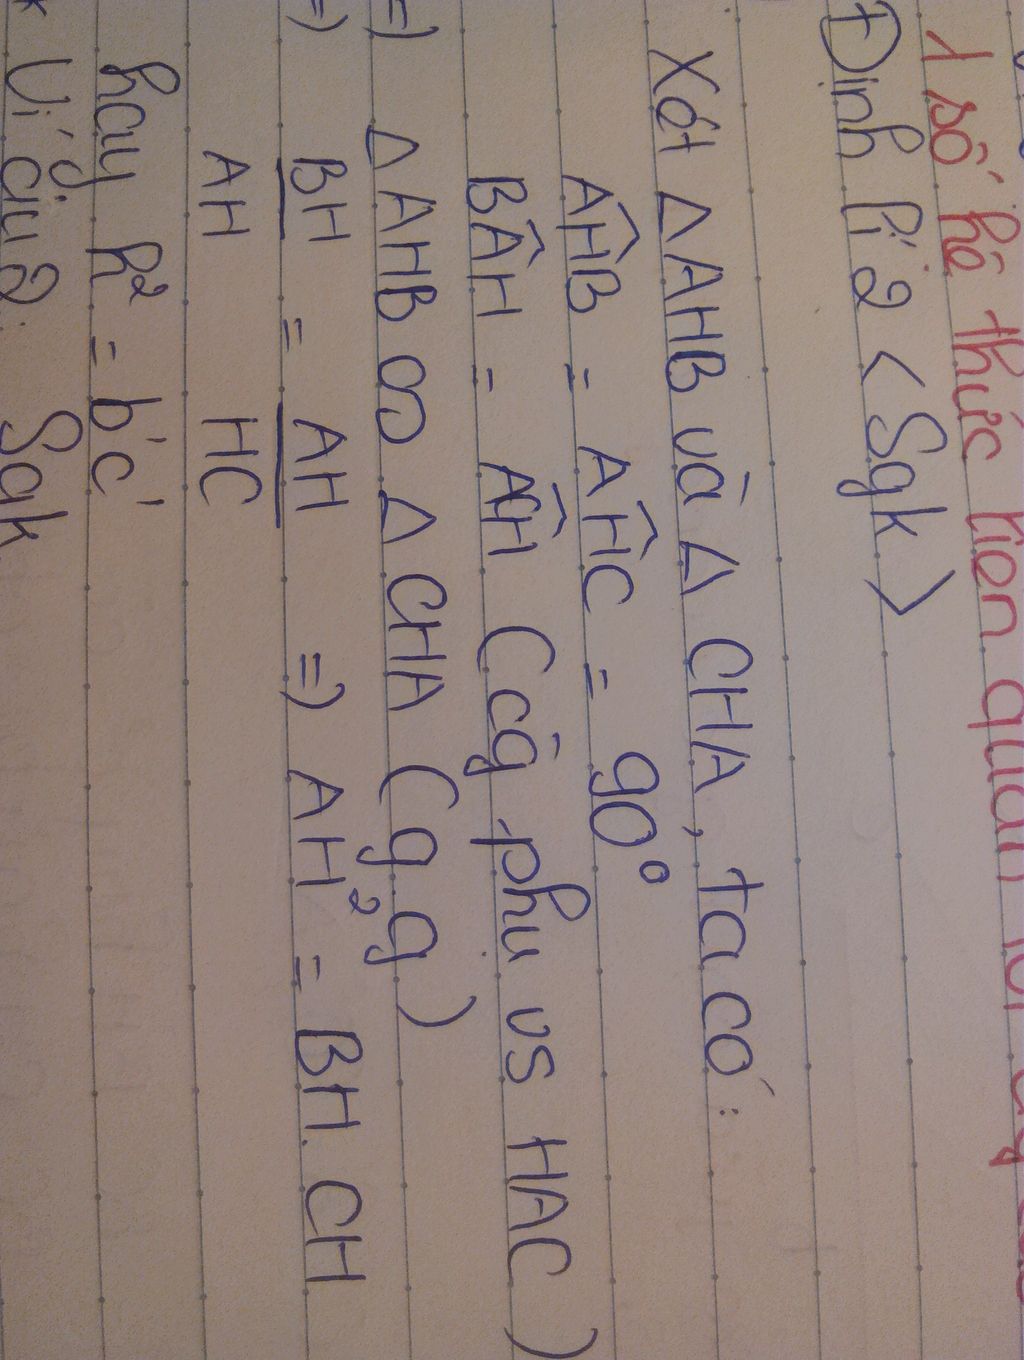 1 số hệ thức liên quan tới đg cao
Định lí 2 < Sgk >
Xét Δ AHB và Δ CHA, ta có:
AĤB = AĤC = 90°
BÂH = AĈH (cg phụ vs HAC)
=) Δ AHB ∽ Δ CHA (g.g)
=) BH/AH = AH/HC =) AH² = BH.CH
hay h² = b'c'
* Ví dụ 2: Sgk